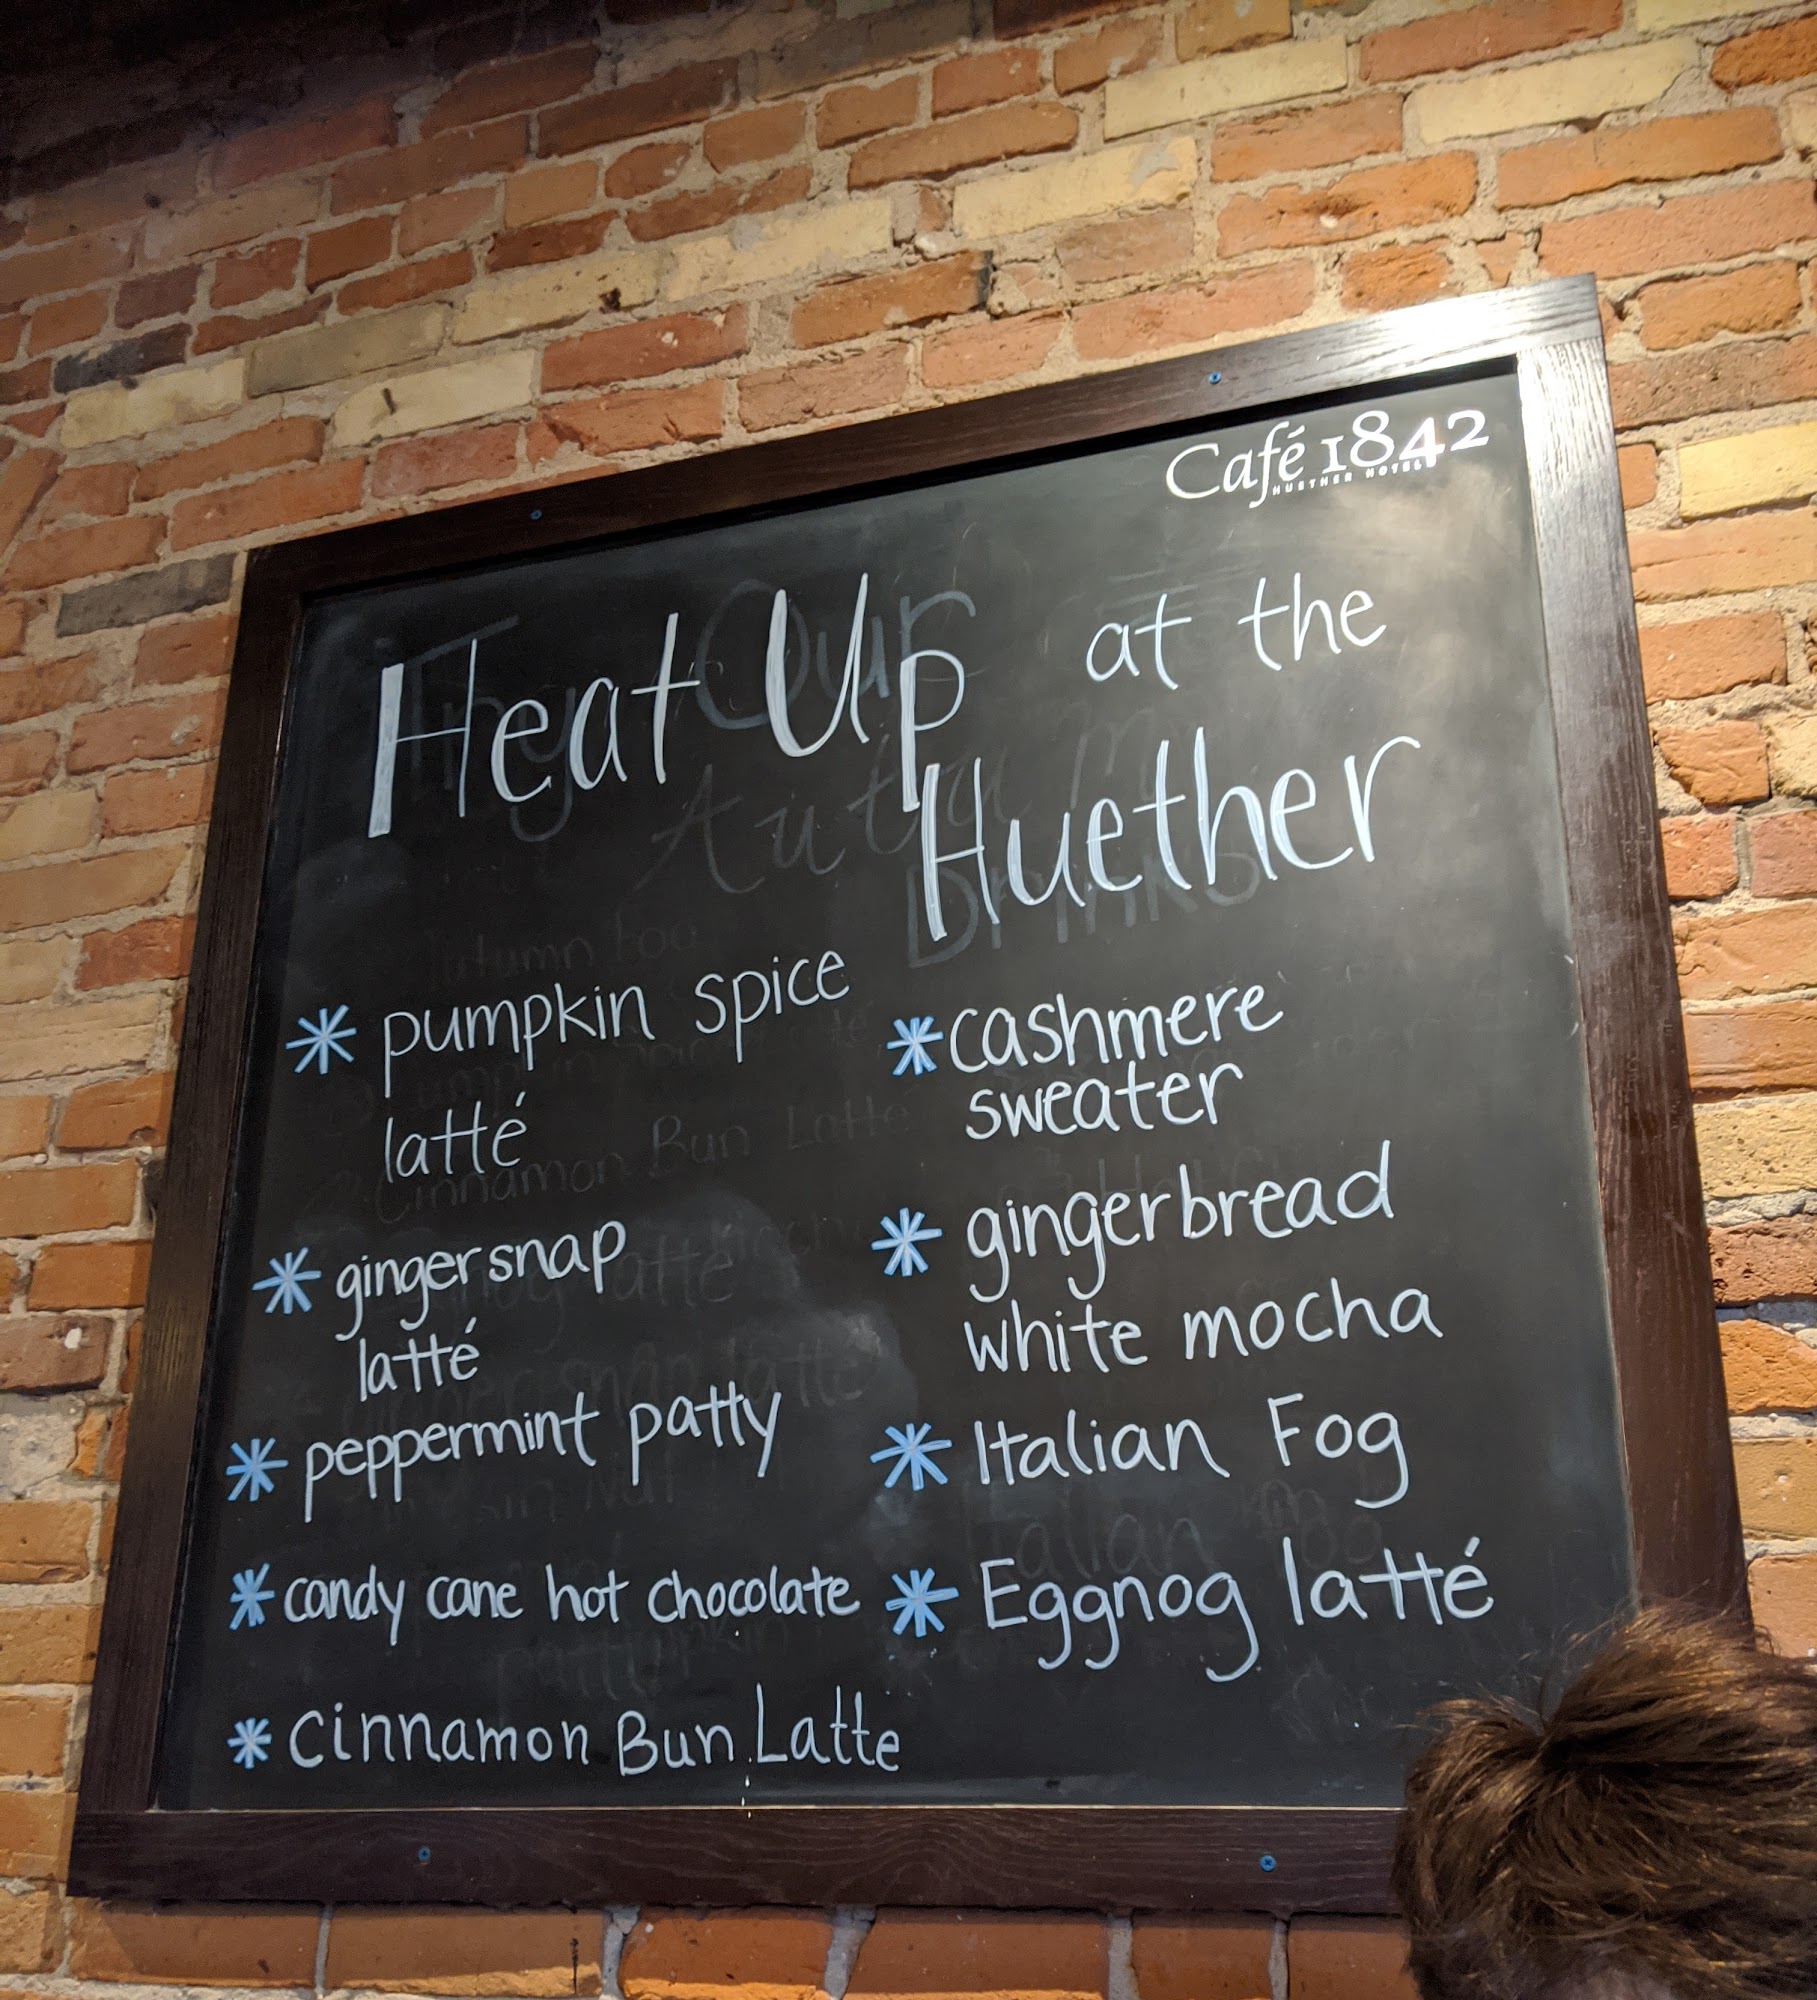 Café 1842
HUETHER HOTEL
Heat Up at the
Huether
* pumpkin spice
latté
* gingersnap
latté
* peppermint patty
* candy cane hot chocolate
* cinnamon Bun Latte
* cashmere
sweater
* gingerbread
white mocha
* Italian Fog
* Eggnog latté